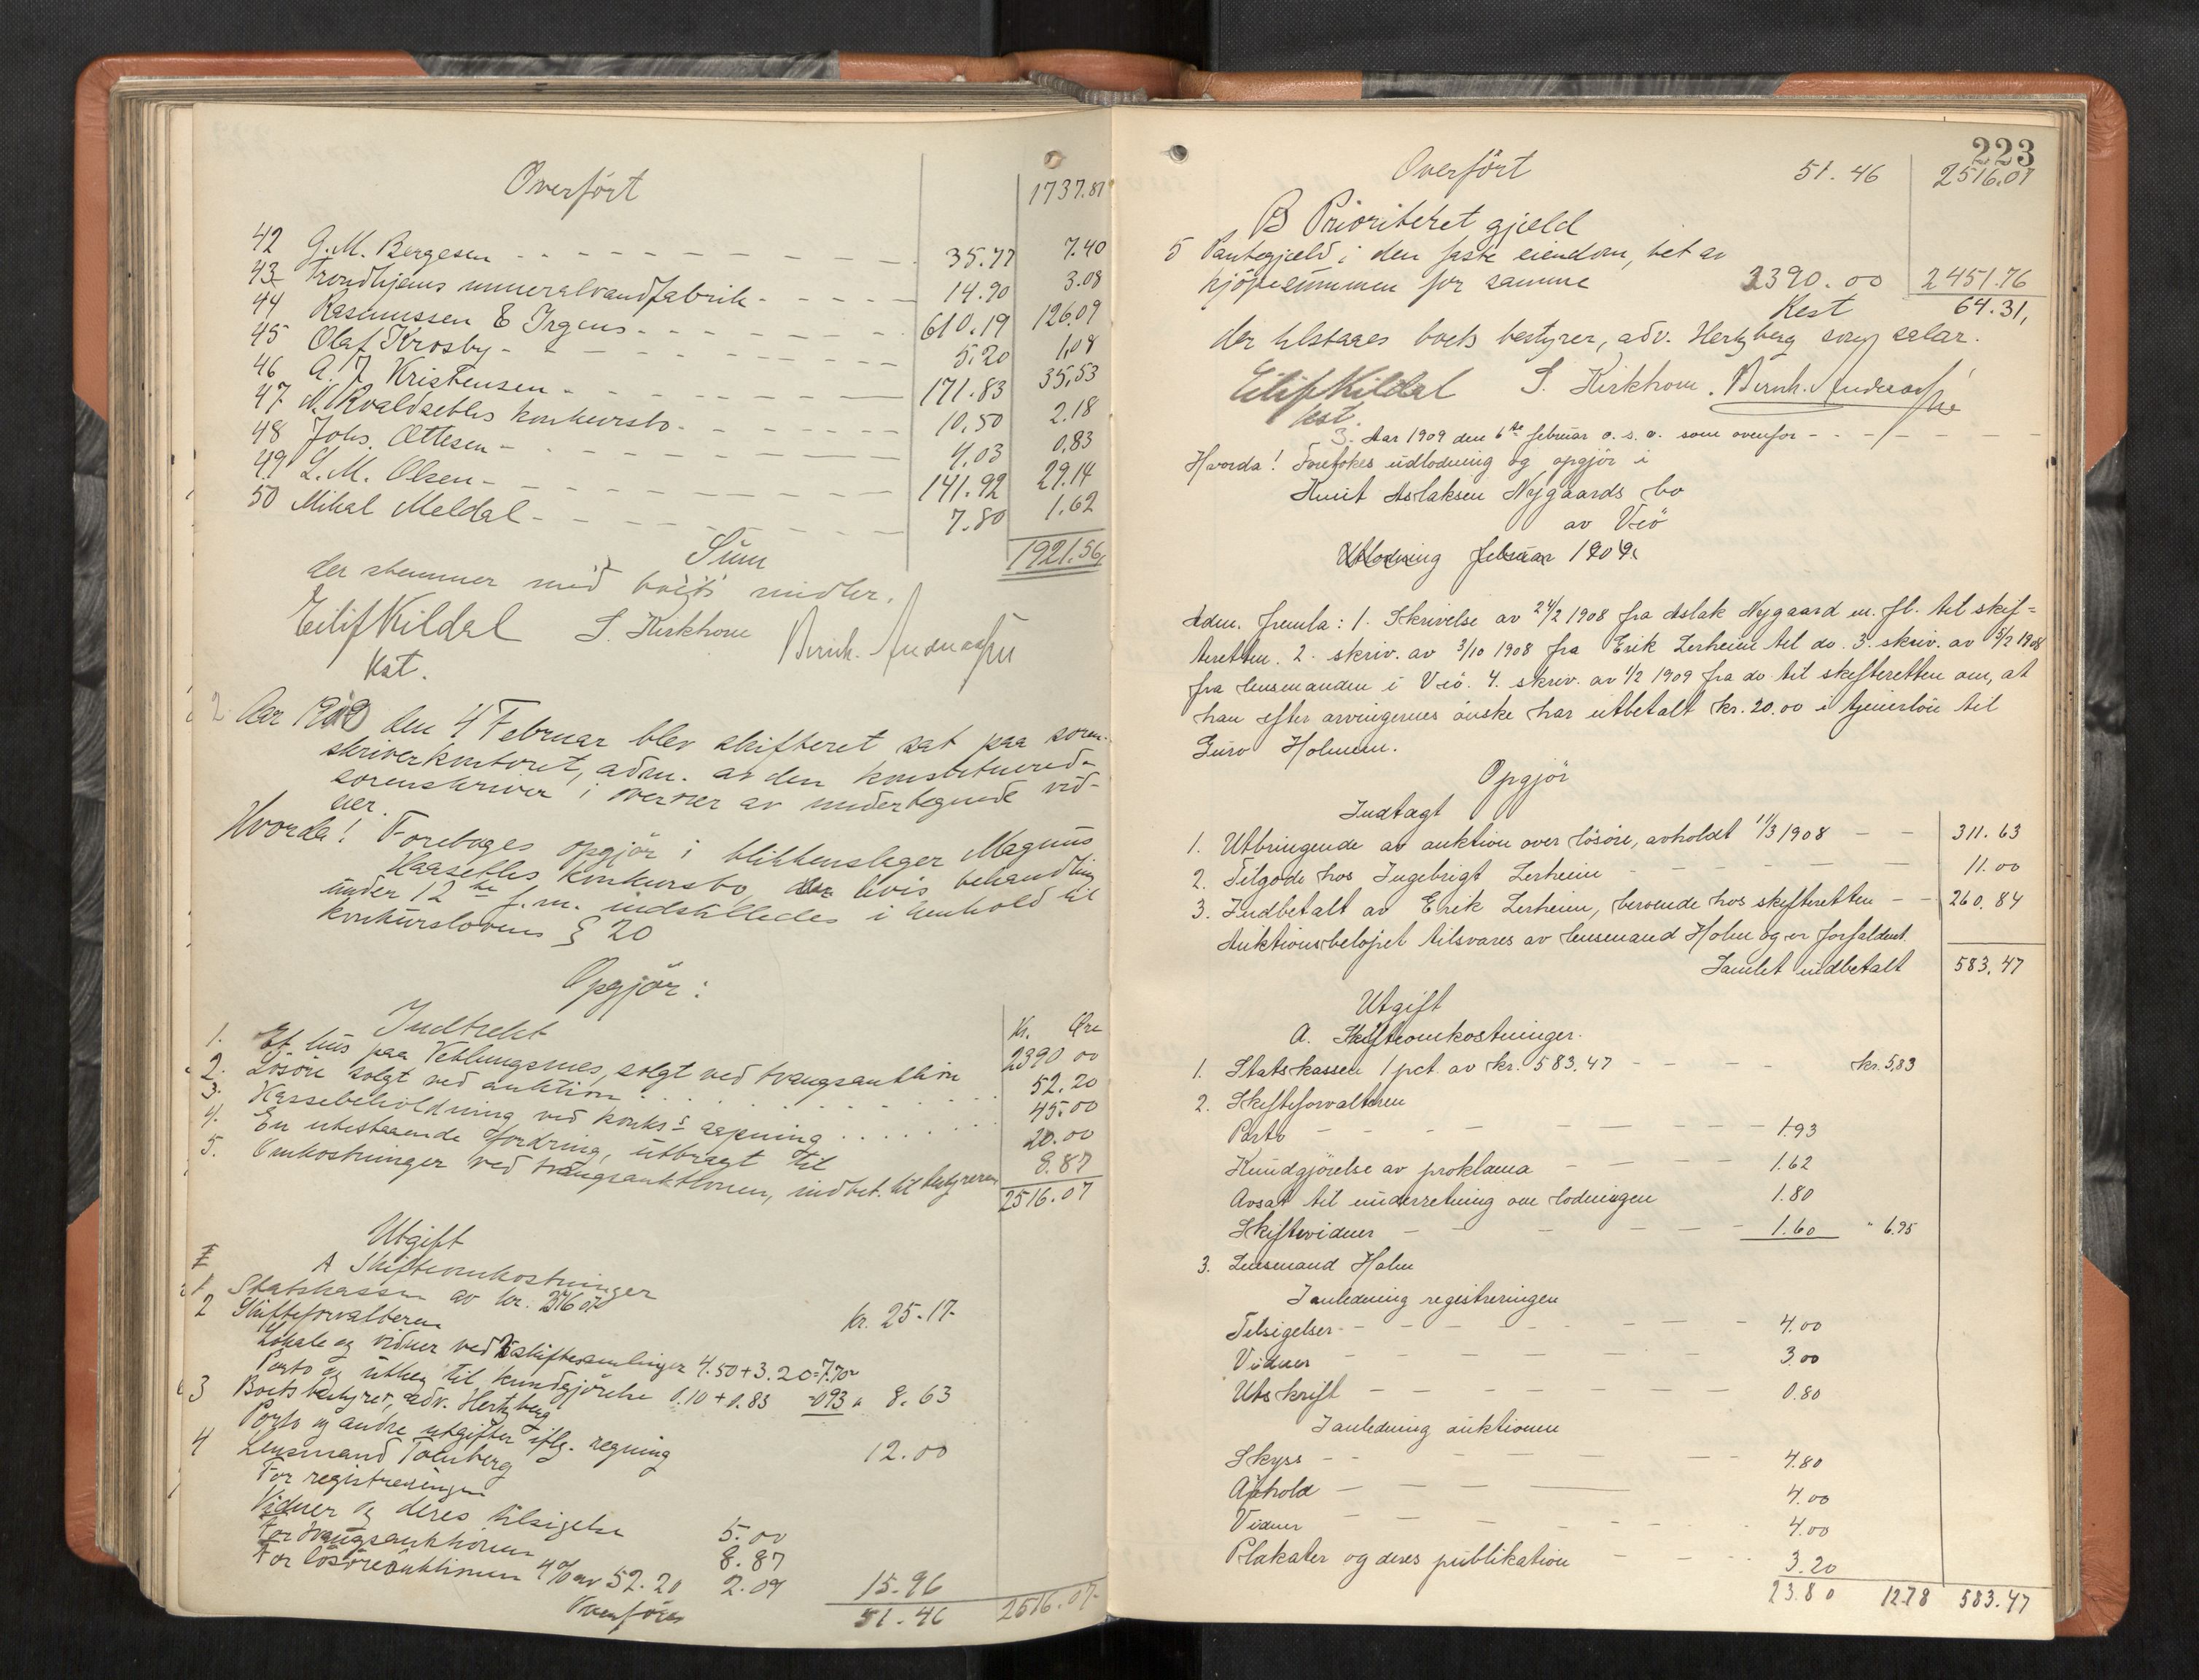 Overført
1737.87
42 G. M. Bergesen - - - 35.77 7.40
43 Trondhjems mineralvandfabrik - - - 14.90 3.08
44 Rasmussen & Irgens - - - 610.19 126.09
45 Olaf Krosby - - - 5.20 1.08
46 A. J. Kristensen - - - 171.83 35.53
47 N. Kvaldseths konkursbo - - - 10.50 2.18
48 Johs. Ottesen - - - 4.03 0.83
49 L. M. Olsen - - - 141.92 29.14
50 Mikal Meldal - - - 7.80 1.62
Sum 1921.56
der stemmer med boets midler.
Eilif Kildal S. Kirkhorn Bernh. Andreassen
kst.
2. Aar 1909 den 4 Februar blev skifteret sat paa soren-
skriverkontoret, adm. av den konstituerede
sorenskriver i overvær av undertegnede vid-
ner.
Hvorda! Foretages opgjør i blikkenslager Magnus
Haaseths konkursbo, hvis behandling
under 12te f.m. indstilledes i henhold til
konkurslovens § 20
Opgjør:
Indtekt Kr. Øre
1. Et hus paa Veblungsnes, solgt ved tvangsauktion 2390 00
2. Løsøre solgt ved auktion . . . 52.20
3. Kassebeholdning ved konks aapning . . . 45.00
4. En utestaaende fordring, utbragt til 20.00
5. Omkostninger ved tvangsauktionen, indbet. til bestyreren 8.87
2516.07
Utgift
A Skifteomkostninger
1 Statskassen av kr. 2516 07 kr. 25.17
2 Skifteforvalteren
Lokale og vidner ved skiftesamlinger 4.50+3.20=7.70
Porto og utlæg til kundgjørelse 0.10+0.83 =0.93 " 8.63
3 Boets bestyrer, adv. Hertzberg
Porto og andre utgifter iflg. regning 12.00
4 Lensmand Tønberg
For registreringen
Vidner og deres tilsigelse 5.00
For tvangsauktionen 8.87
For løsøreauktionen 4 % av 52.20 2.09 15.96
Overføres 51.46 2516.07
223
Overført 51.46 2516.07
B Prioritert gjæld
5 Pantegjæld i den faste eiendom, bet av
kjøpesummen for samme 2390.00 2451.76
Rest 64.31,
der tilstaaes boets bestyrer, adv. Hertzberg som salær.
Eilif Kildal S. Kirkhorn. Bernh. Andreassen
kst.
3. Aar 1909 den 6te februar o. s. v. som ovenfor - - -
Hvorda! Foretokes udlodning og opgjør i
Knut Aslaksen Nygaards bo
av Vøi
Utlodning februar 1909.
Adm. fremla: 1. Skrivelse av 24/2 1908 fra Aslak Nygaard m. fl. til skif-
teretten. 2. skriv. av 3/10 1908 fra Erik Lerheim til do. 3. skriv. av 5/2 1908
fra lensmanden i Vøi. 4. skriv. av 1/2 1909 fra do til skifteretten om, at
han efter arvingernes ønske har utbetalt kr. 20.00 i tjenerløn til
Guro Holmem.
Opgjør
Indtægt
1. Utbringende av auktion over løsøre, avholdt 11/3 1908 - - 311.63
2. Tilgode hos Ingebrigt Lerheim - - - 11.00
3. Indbetalt av Erik Lerheim, beroende hos skifteretten - - 260.84
Auktionsbeløpet tilsvares av lensmand Holm og er forfaldent.
Samlet indbetalt 583.47
Utgift
A. Skifteomkostninger.
1. Statskassen 1 pct. av kr. 583.47 - - - kr. 5,83
2. Skifteforvalteren
Porto - - - 1.93
Kundgjørelse av proklama - - - 1.62
Avsat til underretning om lodningen 1.80
Skiftevidner - - - 1.60 " 6.95
3. Lensmand Holm
I anledning registreringen
Tilsigelser - - - 4.00
Vidner - - - 3.00
Utskrift - - - 0.80
I anledning auktionen
Skyss - - - 4.80
Ophold - - - 4.00
Vidner - - - 4.00
Plakater og deres publikation - - - 3.20
23.80 12.78 583.47